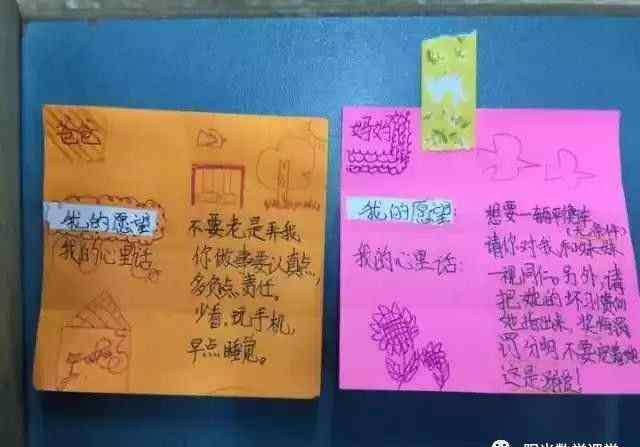 爸爸
我的愿望:
不要老是弄我
我的心里话
你做事要认真点,
多负点责任。
少看、玩手机,
早点睡觉。
妈妈
我的愿望:
想要一辆平衡车
(无条件)
我的心里话:
请你对我和妹妹
一视同仁。另外,请
把她的坏习惯
她指出来,奖
罚分明 不要
这是溺爱!